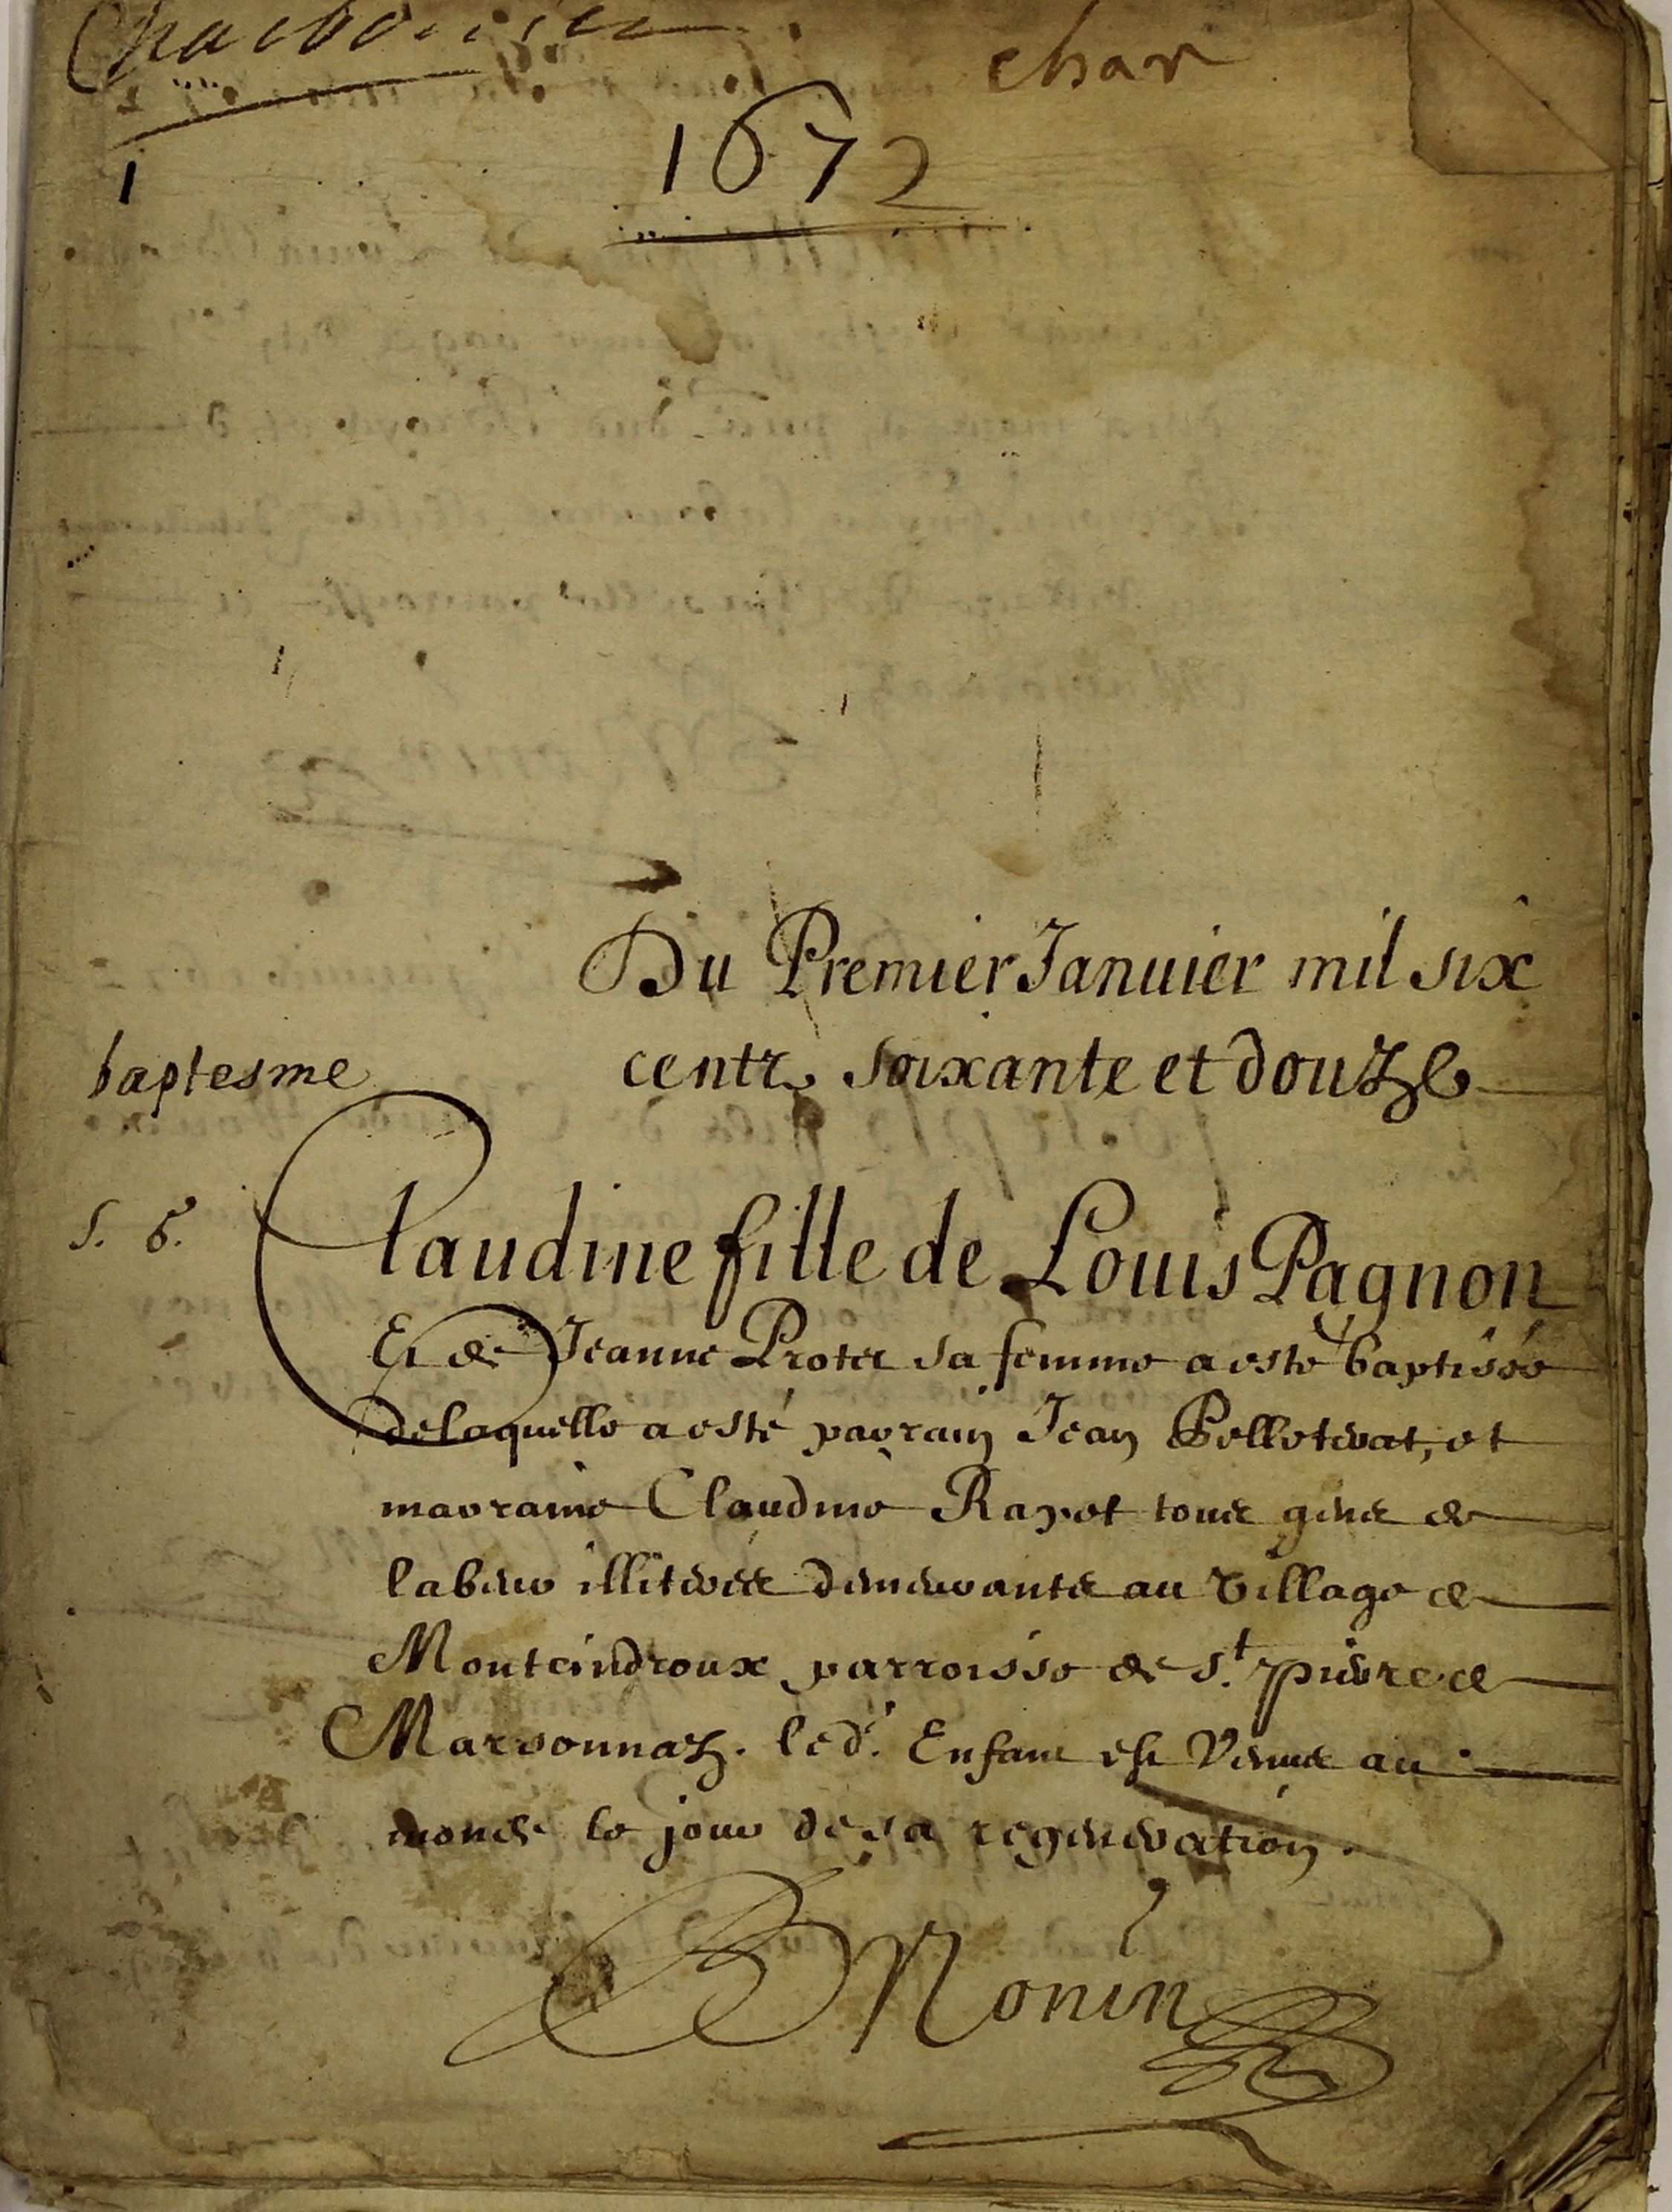 char
1
1672
Du Premier Januier mil six
centz soixante et douze
baptesme
S. b.
Claudine fille de Louis Pagnon
Et de Jeanne Protet sa femme a esté baptisée
de laquelle a esté parrain Jean Pelleterat, et
marraine Claudine Rapot tous gens de
labeur illiterés demeurants au village de
Monteindroux parroisse de St. pierre de
Marsonnaz. led. Enfant est Venue au
monde le jour de sa regeneration.
BMonin